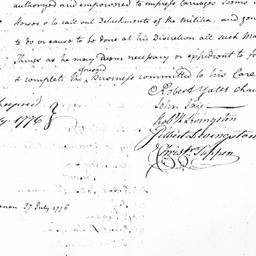 authorized and empowered to impress Carriages Teams
Horses &c to call out Detachments of the Militia, and gen
to do or cause to be done at his Discretion all such Ma
Things as he may deem necessary or expedient to f
& compleat the Business committed to his Care
Robert Yates Chair
John Jay
Rob R Livingston
Gilbert Livingston
Christr Tappen
1776
27 July 1776